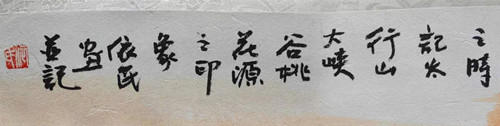 之時
記太
行山
大峡
谷桃
花源
之印
象
依民
畫
並記